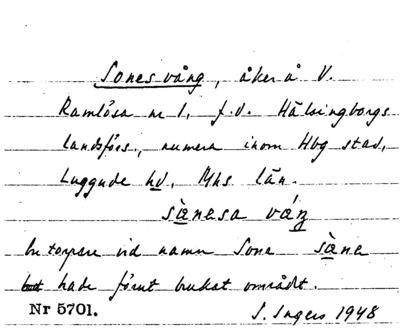 Sonesvång, åker å V.
Ramlösa nr 1, f.d. Hälsingborgs
landsförs., numera inom Hbg stad,
Luggude hd, Mhs län.
sànesa váŋ
En torpare vid namn Sone sàne
hade förut brukat området.
Nr 5701. S. Ingers 1948